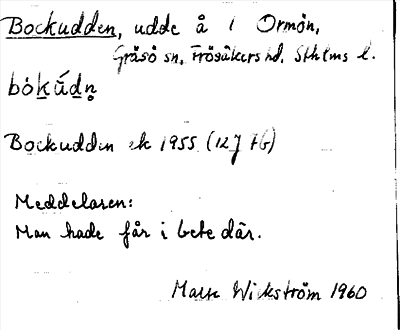 Bockudden, udde å 1 Ormön,
Gräsö sn, Frösåkers hd, Sthlms l.
bókǘdn̥
Bockudden ek 1955 (12J FG)
Meddelaren:
Man hade får i bete där.
Wickström 1960